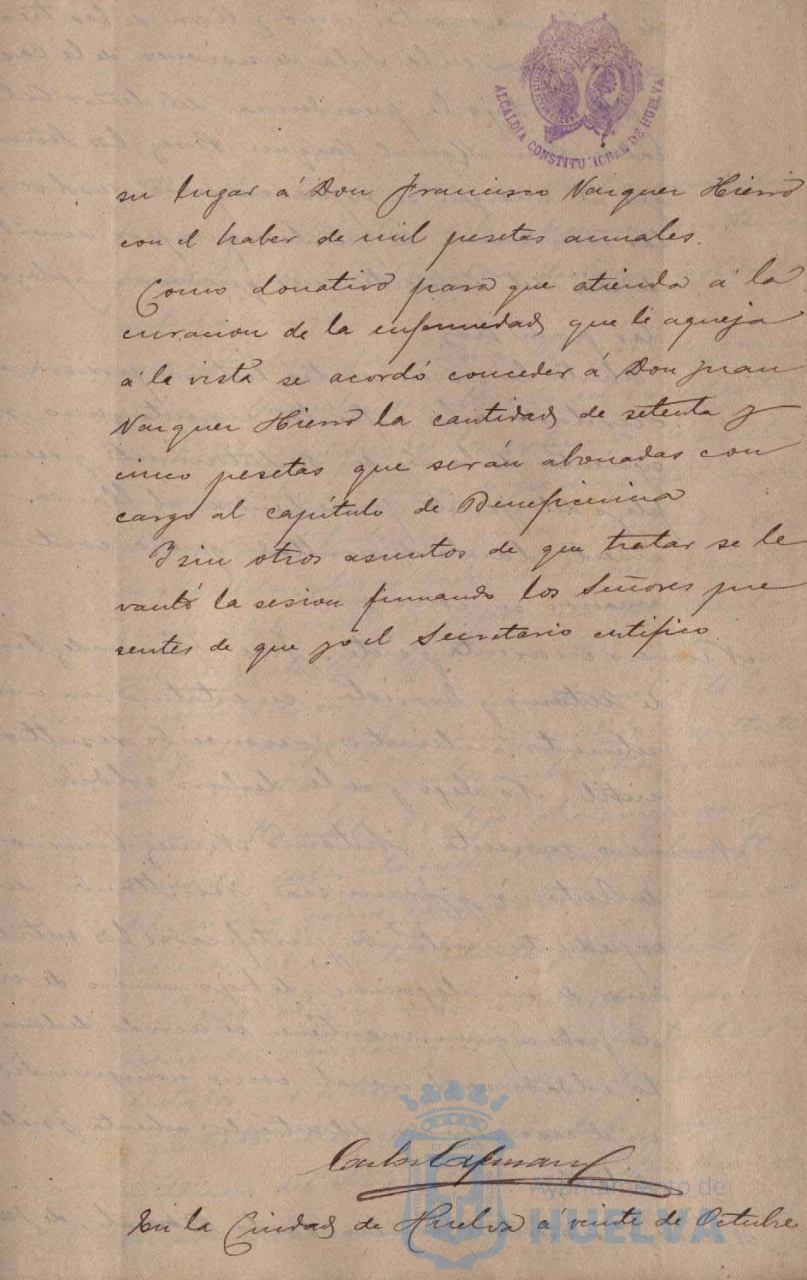 ALCALDIA CONSTITUCIONAL DE HUELVA
su lugar á Don Francisco Vazquez Hierro
con el haber de mil pesetas annales.
Como donativo para que atienda á la
curacion de la enfermedad que le aqueja
á la vista se acordó conceder á Don Juan
Vazquez Hierro la cantidad de setenta y
cinco pesetas que serán abonadas con
cargo al capítulo de Beneficencia
Y sin otros asuntos de que tratar se le
vantó la sesion firmando los Señores pre
sentes de que yo el Secretario certifico.
Carlos
En la Ciudad de Huelva á veinte de Octubre
Ayuntamiento de
HUELVA